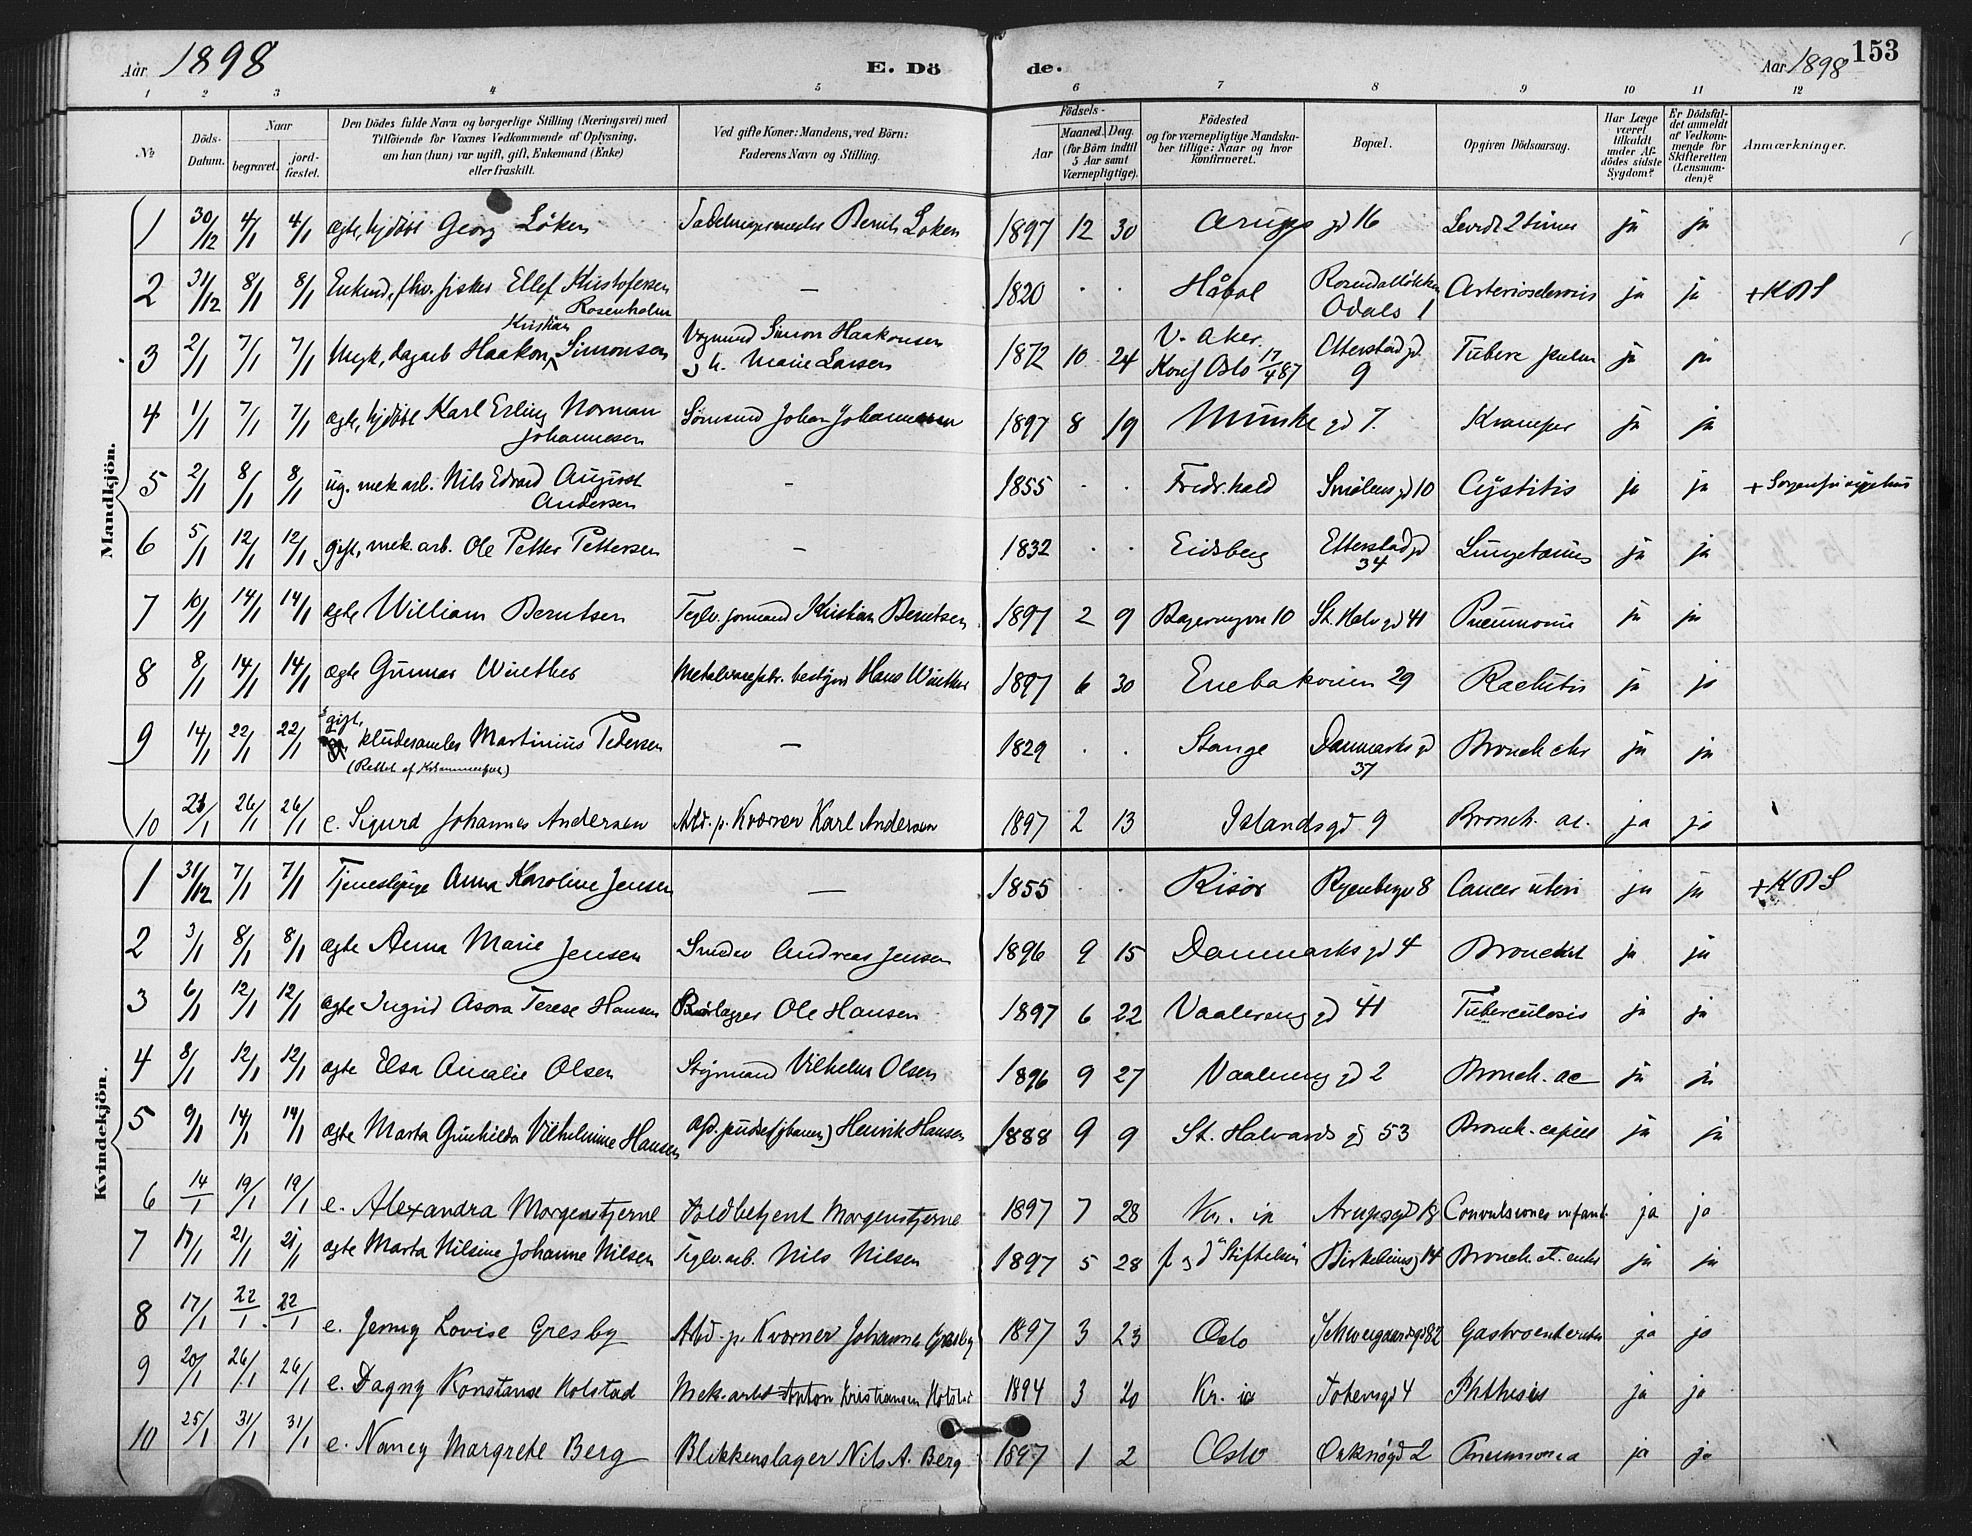 Aar 1898 E. Döde. Aar 1898 153
1 2 3 4 5 6 7 8 9 10 11 12
№
Döds-Datum.
Naar
begravet.
jordfæstet.
Den Dödes fulde Navn og borgerlige Stilling (Næringsvei) med
Tilföiende for Voxnes Vedkommende af Oplysning,
om han (hun) var ugift, gift, Enkemand (Enke)
eller fraskilt.
Ved gifte Koner: Mandens, ved Börn:
Faderens Navn og Stilling.
Födsels-
Aar
Maaned. Dag.
(for Börn indtil
5 Aar samt
Værnepligtige).
Födested
og for værnepligtige Mandska-
ber tillige: Naar og hvor
konfirmeret.
Bopæl.
Opgiven Dödsaarsag.
Har Læge
været
tilkaldt
under Af-
dödes sidste
Sygdom?
Er Dödsfal-
det anmeldt
af Vedkom-
mende for
Skifteretten
(Lensman-
den)?
Anmærkninger.
Mandkjön.
1 30/12 4/1 4/1 ægte, hjdöbt Georg Löken Bernt Löken 1897 12 30 Arups gd 16 Levede 2 timer ja ja
2 31/12 8/1 8/1 Enkmd, fhv. fisker Ellef Kristofersen Rosenholm — 1820 . . Håböl Rosendalløkken Odals 1 Arteriosclerosis ja ja + K B S
3 2/1 7/1 7/1 Ungk, dagarb Haakon Kristian Simonsen Vognmd Simon Haakonsen og h. Marie Larsen 1872 10 24 V. Aker. Konf Oslo 17/4 87 Etterstad gd. 9 Tuberc pulm ja ja
4 1/1 7/1 7/1 ægte, hjdöbt Karl Erling Norman Johannesen Sömand Johan Johannesen 1897 8 19 Munke gd 7. Kramper ja ja
5 2/1 8/1 8/1 ug. mek arb. Nils Edvard August Andersen — 1855 . . Fredr.hald Smålens gd 10 Cystitis ja ja
6 5/1 12/1 12/1 gift, mek. arb. Ole Petter Pettersen — 1832 . . Eidsberg Etterstad gd 34 ja ja
7 10/1 14/1 14/1 ægte William Berntsen Teglv. formand Kristian Berntsen 1897 2 9 10 St. Halv gd 41 Pneumonie ja ja
8 8/1 14/1 14/1 ægte Gunnar Winther bestyrer Hans Winther 1897 6 30 Enebakveien 29 Rachitis ja ja
9 14/1 22/1 22/1 gift, kludesamler Martinius Pedersen — 1829 . . Stange Danmarks gd 37 Bronch chr ja ja
10 23/1 26/1 26/1 e. Sigurd Johannes Andersen Arbd. p. Kværner Karl Andersen 1897 2 13 Islands gd 9 Bronch. ac. ja ja
Kvindekjön.
1 31/12 7/1 7/1 Tjenestpige Anna Karoline Jensen — 1855 . . Risör Ryenbergv 8 Cancer uteri ja ja + K B S
2 3/1 8/1 8/1 ægte Anna Marie Jensen Smed Andreas Jensen 1896 9 15 Danmarks gd 4 Bronchit ja ja
3 6/1 12/1 12/1 ægte Ingrid Asora Terese Hansen Ole Hansen 1897 6 22 Vaalereng gd 41 Tuberculosis ja ja
4 8/1 12/1 12/1 ægte Elsa Amalie Olsen Styrmand Vilhelm Olsen 1896 9 27 Vaalereng gd 2 Bronch. ac ja ja
5 9/1 14/1 14/1 ægte Marta Gunhilda Vilhelmine Hansen Henrik Hansen 1888 9 9 St. Halvards gd 53 Bronch. capill ja ja
6 14/1 19/1 19/1 e. Alexandra Morgenstjerne Toldbetjent Morgenstjerne 1897 7 28 Kr. ia Arupsgd 18 Convulsiones infant. ja ja
7 17/1 21/1 21/1 ægte Marta Nilsine Johanne Nilsen Teglv. arb. Nils Nilsen 1897 5 28 "Stiftelsen" 14 Bronch. et. ja ja
8 17/1 22/1 22/1 e. Jenny Lovise Gresby Arbd. p. Kværner Johannes Gresby 1897 3 23 Oslo Schweigaardsgd 82 Gastroenteritis ja ja
9 20/1 26/1 26/1 e. Dagny Konstanse Holstad Mek. arbd Anton Kristiansen Holstad 1894 3 20 Kr. ia Tøiengd 4 Phthisis ja ja
10 25/1 31/1 31/1 e. Nancy Margrete Berg Blikkenslager Nils A. Berg 1897 1 2 Oslo Orknögd 2 Pneumonia ja ja